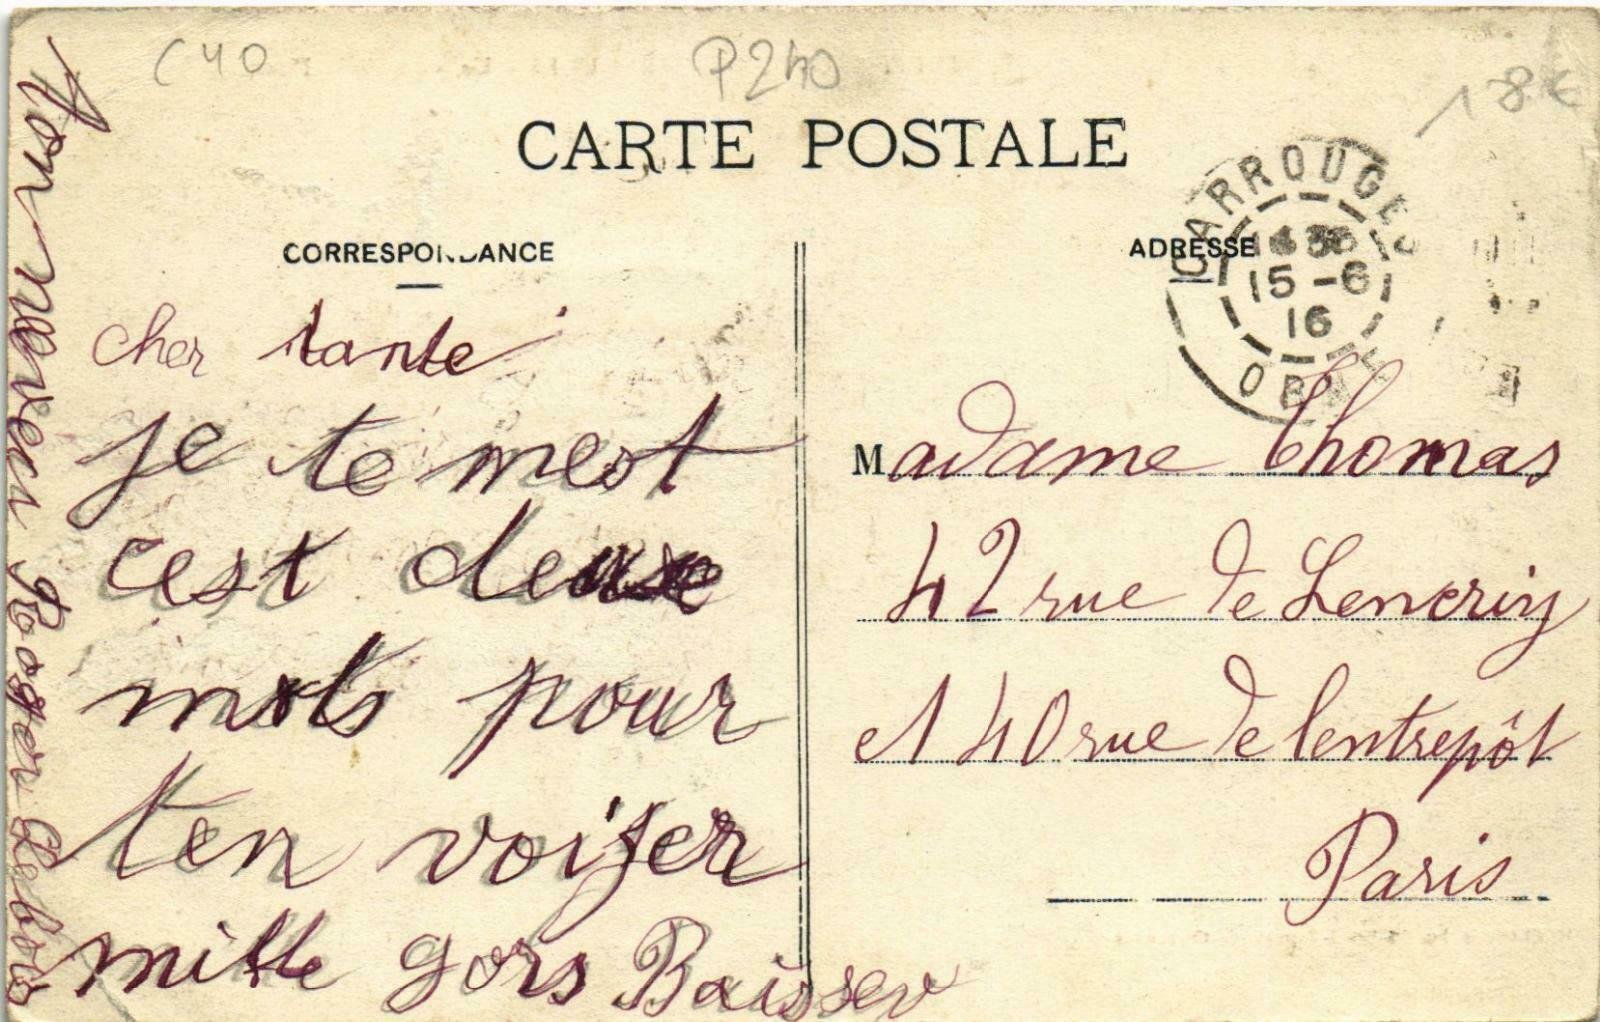 C40
P240
18€
CARTE POSTALE
CORRESPONDANCE
ADRESSE
CARROUGES
15-6
16
ORNE
cher tante
je te mest
cest deuxe
mots pour
ten voiyer
mille gors Baisser
ton neveu Roger Lebois
Madame Thomas
42 rue de Lencriy
et 40 rue de lentrepôt
Paris